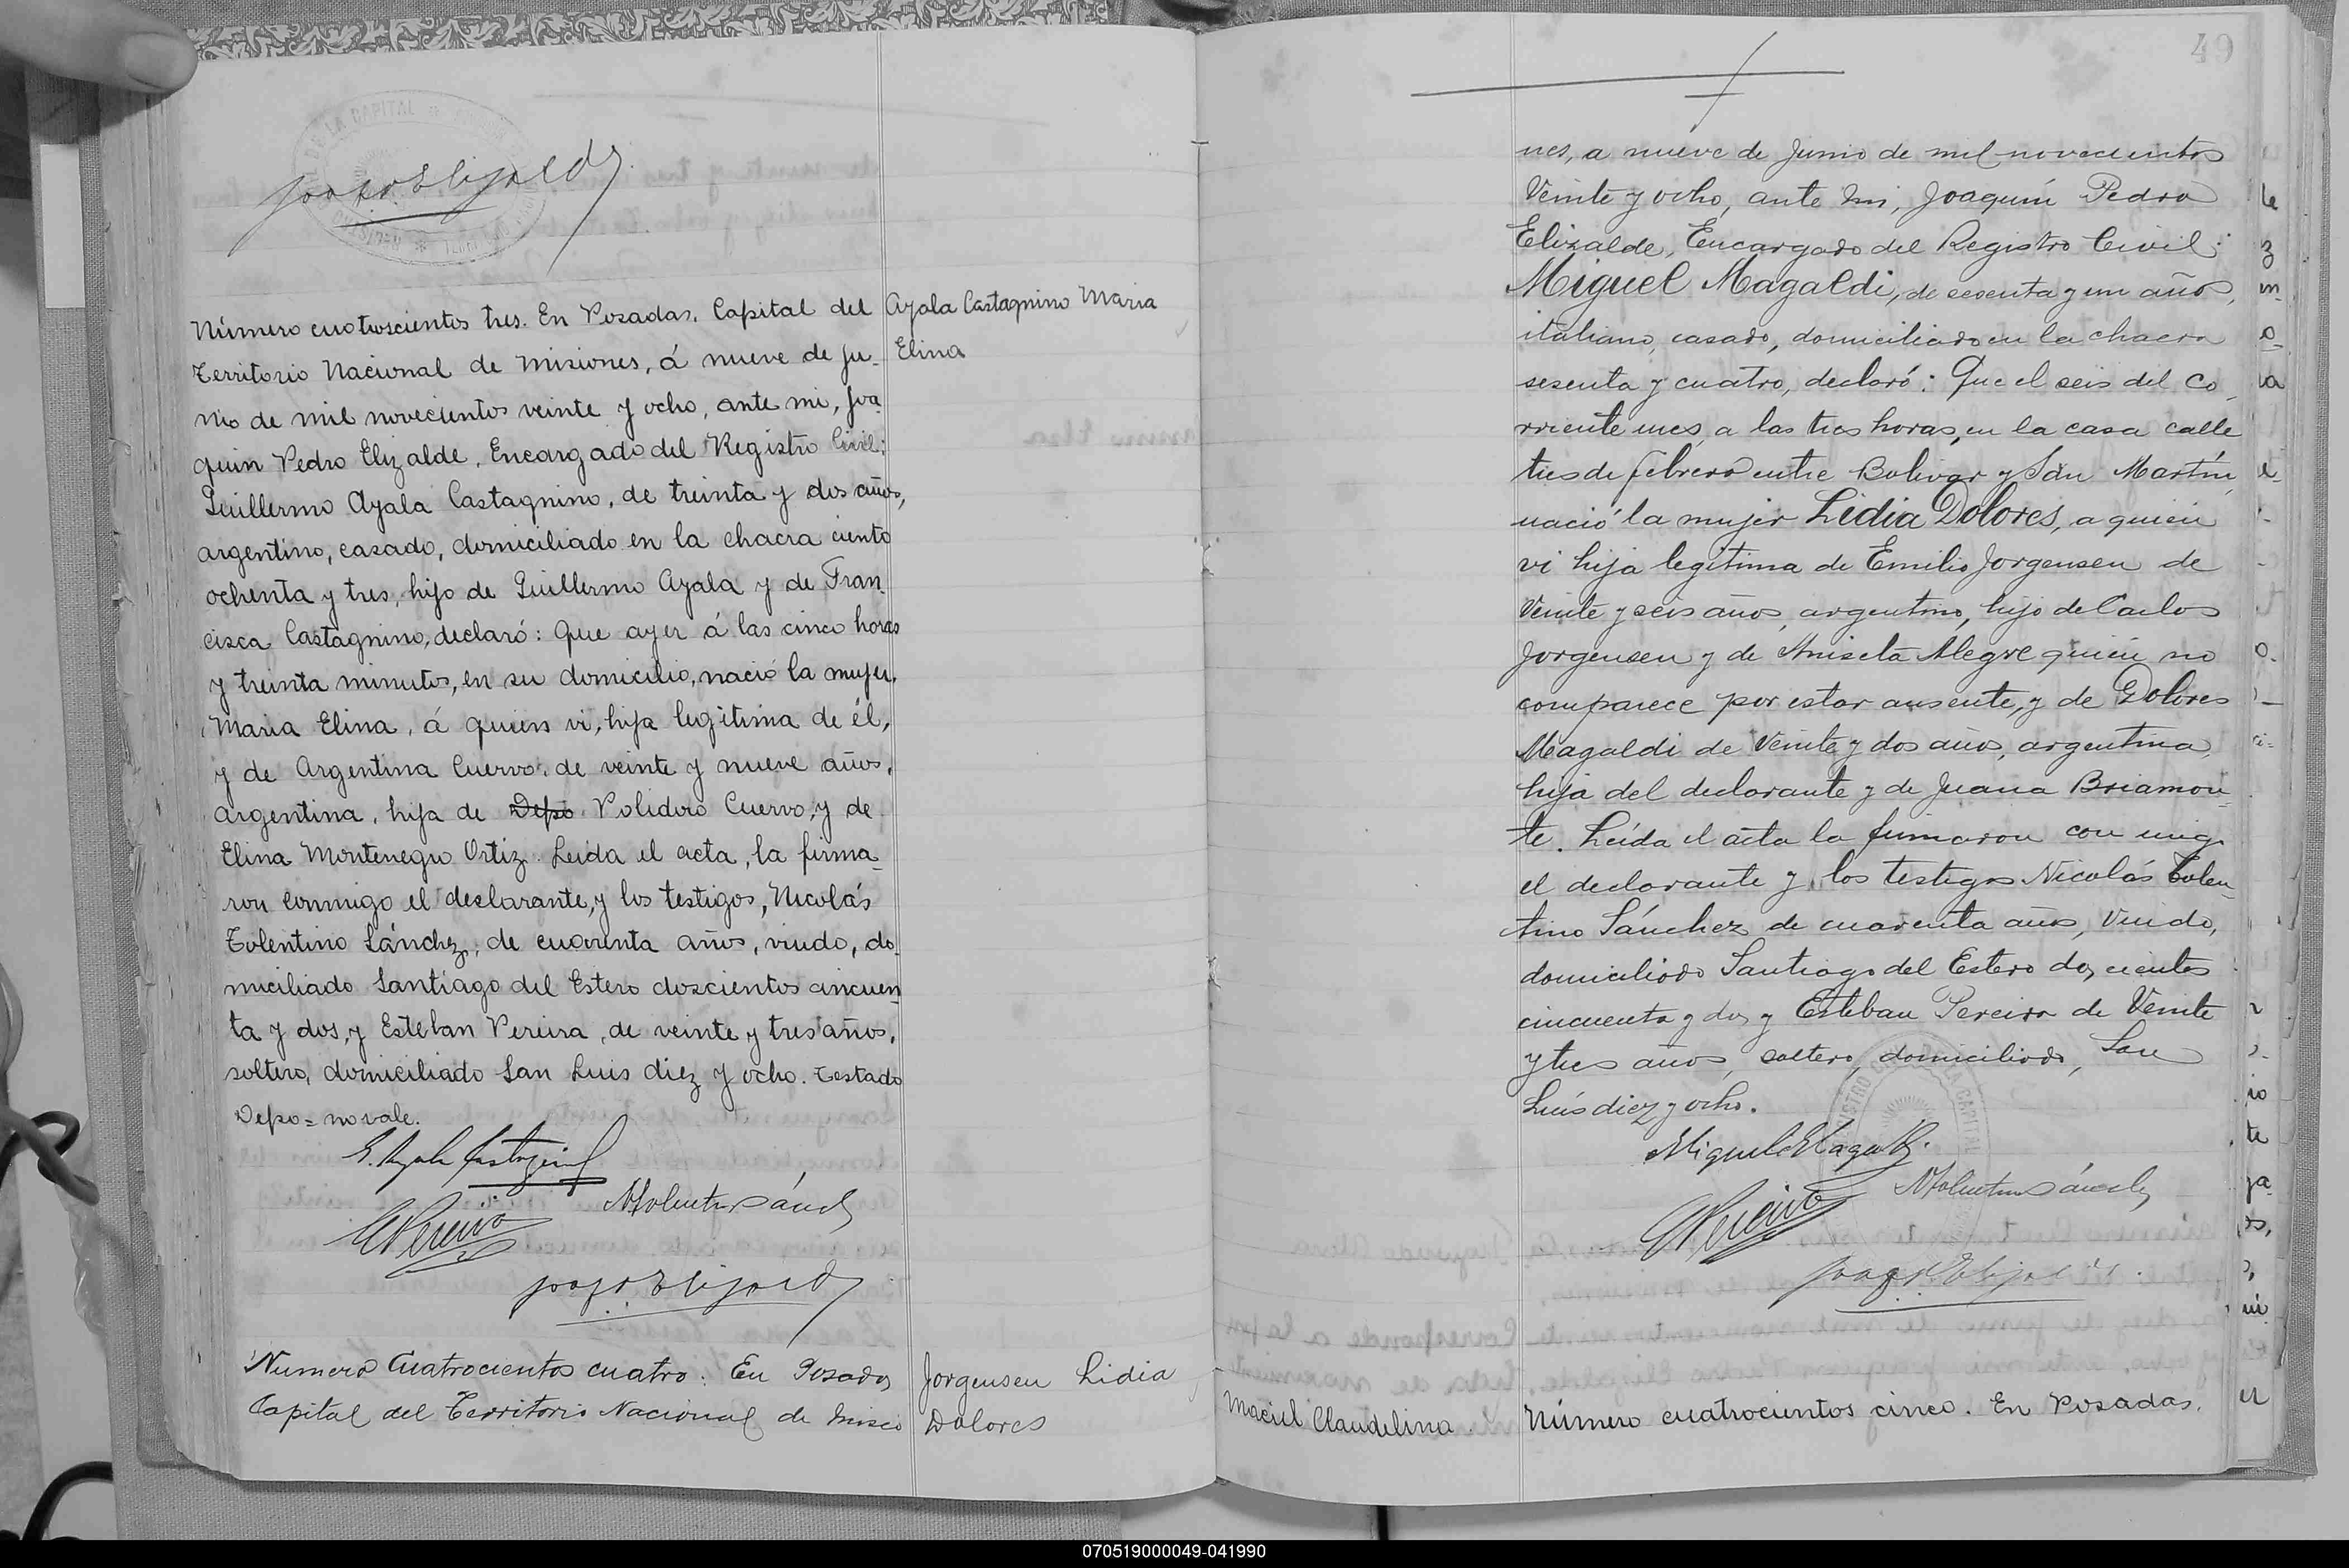 Número cuatroscientos tres. En Posadas, Capital del
Territorio Nacional de Misiones, á nueve de ju-
nio de mil novecientos veinte y ocho, ante mi, Joa-
quin Pedro Elizalde, Encargado del Registro Civil:
Guillermo Ayala Castagnino, de treinta y dos años,
argentino, casado, domiciliado en la chacra ciento
ochenta y tres, hijo de Guillermo Ayala y de Fran-
cisca Castagnino, declaró: Que ayer á las cinco horas
y treinta minutos, en su domicilio, nació la mujer,
Maria Elina, á quien vi, hija legitima de él,
y de Argentina Cuervo, de veinte y nueve años,
argentina, hija de Depo Polidoro Cuervo, y de
Elina Montenegro Ortiz. Leida el acta, la firma-
ron conmigo el declarante, y los testigos, Nicolás
Tolentino Sánchez, de cuarenta años, viudo, do-
miciliado Santiago del Estero doscientos cincuen-
ta y dos, y Esteban Pereira, de veinte y tres años,
soltero, domiciliado San Luis diez y ocho. Testado
Depo = no vale.
G. Ayala Castagnino
E Pereira
NTolentino Sánchez
Joaq. P. Elizalde
Ayala Castagnino Maria
Elina
Numero Cuatrocientos cuatro. En Posadas
Capital del Territorio Nacional de Misio
Jorgensen Lidia
Dolores
49
nes, a nueve de Junio de mil novecientos
Veinte y ocho, ante mi, Joaquín Pedro
Elizalde, Encargado del Registro Civil:
Miguel Magaldi, de sesenta y un años,
italiano, casado, domiciliado en la chacra
sesenta y cuatro, declaró: Que el seis del co-
rriente mes, a las tres horas, en la casa calle
tres de febrero entre Bolivar y San Martín,
nació la mujer Lidia Dolores, a quien
vi hija legítima de Emilio Jorgensen de
Veinte y seis años, argentino, hijo de Carlos
Jorgensen y de Aniseta Alegre quien no
comparece por estar ausente, y de Dolores
Magaldi de Veinte y dos años, argentina,
hija del declarante y de Juana Briamon-
te. Leída el acta la firmaron con migo
el declarante y los testigos Nicolás Tolen-
tino Sánchez de cuarenta años, Viudo,
domiciliado Santiago del Estero dos cientos
cincuenta y dos y Esteban Pereira de Veinte
y tres años, soltero, domiciliado, San
Luis diez y ocho.
Miguel Magaldi
E Pereira
NTolentino Sánchez
Joaq. P. Elizalde
Maciel Claudelina
Número cuatrocientos cinco. En Posadas,
070519000049-041990